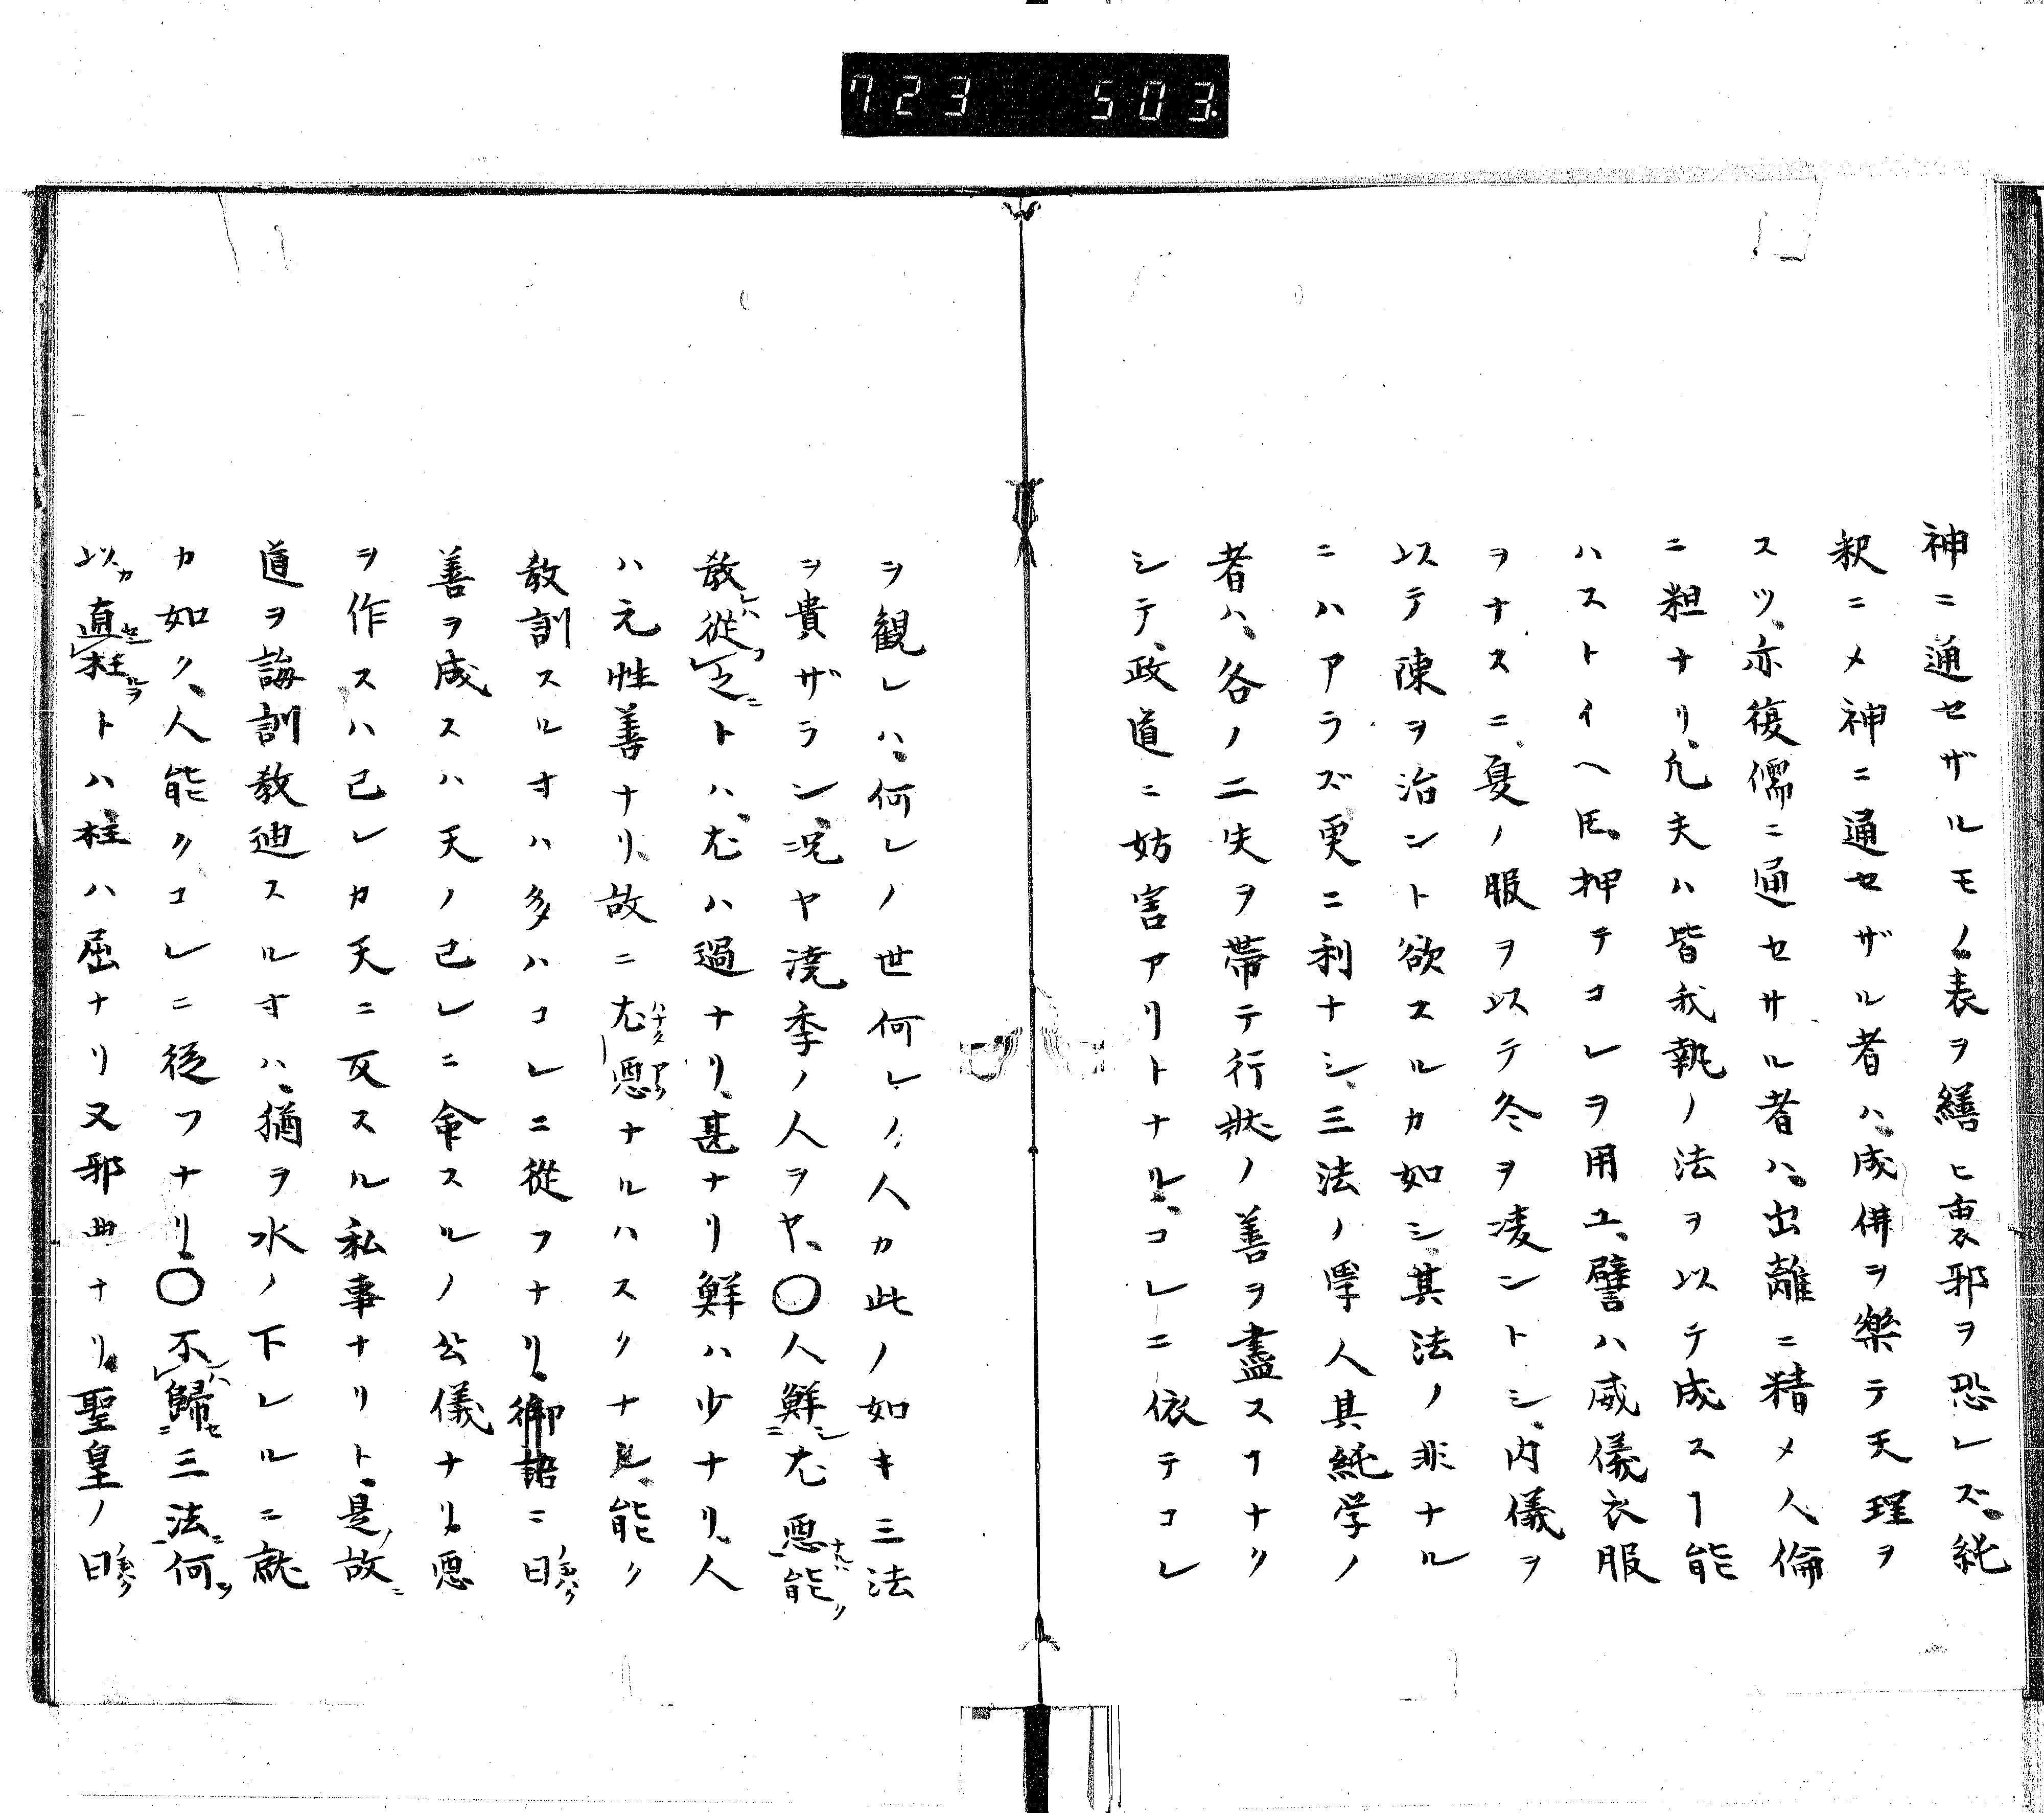 723 503
神ニ通セザルモノ、表ヲ繕ヒ裏邪ヲ恐レズ、純
釈ニメ神ニ通セザル者ハ、成佛ヲ樂テ天理ヲ
スツ、亦復儒ニ通セサル者ハ、出離ニ精メ人倫
ニ粗ナリ、凢夫ハ皆我執ノ法ヲ以テ成スヿ能
ハストイヘ𪜈、押テコレヲ用ユ、譬ハ威儀衣服
ヲナスニ、夏ノ服ヲ以テ冬ヲ凌ントシ、内儀ヲ
以テ陳ヲ治ント欲スルカ如シ、其法ノ非ナル
ニハアラズ更ニ利ナシ、三法ノ學人其純学ノ
者ハ、各ノ二失ヲ帯テ行状ノ善ヲ盡スヿナク
シテ、政道ニ妨害アリトナリ、コレニ依テコレ
ヲ観レハ、何レノ世何レノ人カ此ノ如キ三法
ヲ貴ザラン、况ヤ澆季ノ人ヲヤ、〇人鮮尤悪能
教從之トハ、尤ハ過ナリ、甚ナリ鮮ハ少ナリ、人
ハ元性善ナリ、故ニ尤悪ナルハスクナシ、能ク
教訓スルオハ多ハコレニ從フナリ、御語ニ曰
善ヲ成スハ天ノ己レニ命スルノ公儀ナリ、悪
ヲ作スハ己レカ天ニ反スル私事ナリト、是故
道ヲ誨訓教迪スルオハ、猶ヲ水ノ下レルニ就
カ如ク、人能クコレニ從フナリ、〇不歸三法何
以直枉トハ、枉ハ屈ナリ又邪曲ナリ、聖皇ノ曰